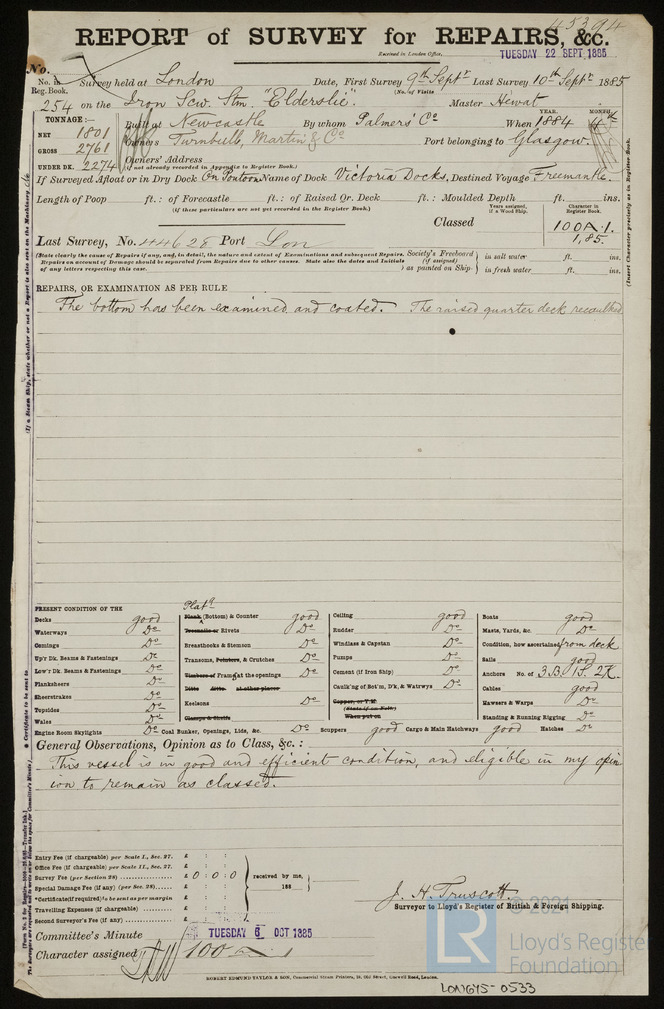 45394
REPORT of SURVEY for REPAIRS, &c.
Received in London Office,
TUESDAY 22 SEPT 1885
No.
No. in Reg. Book. Survey held at London Date, First Survey 9th Septr Last Survey 10th Septr 1885
(No. of Visits
254 on the Iron Scw. Stm. "Elderslie". Master Hewat
TONNAGE:— Built at Newcastle By whom Palmers' Co When 1884
YEAR. MONTH.
NET 1801
GROSS 2761
UNDER DK. 2274
Owners Turnbull, Martin & Co Port belonging to Glasgow.
Owners' Address
(if not already recorded in Appendix to Register Book.)
If Surveyed Afloat or in Dry Dock On Pontoon Name of Dock Victoria Docks. Destined Voyage Freemantle.
Length of Poop ft.: of Forecastle ft.: of Raised Qr. Deck ft.: Moulded Depth ft. ins.
(if these particulars are not yet recorded in the Register Book.)
Years assigned, if a Wood Ship.
Character in Register Book.
Classed 100A.1.
1,85.
Last Survey, No. 44628 Port Lon
(State clearly the cause of Repairs if any, and, in detail, the nature and extent of Examinations and subsequent Repairs.
Repairs on account of Damage should be separated from Repairs due to other causes. State also the dates and Initials
of any letters respecting this case.
Society's Freeboard (if assigned) as painted on Ship
in salt water ft. ins.
in fresh water ft. ins.
REPAIRS, OR EXAMINATION AS PER RULE
The bottom has been examined and coated. The raised quarter deck recaulked
PRESENT CONDITION OF THE
Decks good
Waterways Do
Comings Do
Up'r Dk. Beams & Fastenings Do
Low'r Dk. Beams & Fastenings Do
Planksheers Do
Sheerstrakes Do
Topsides Do
Wales Do
Engine Room Skylights Do
Platg
Plank (Bottom) & Counter good
Treenails or Rivets Do
Breasthooks & Stemson Do
Transoms, Pointers, & Crutches Do
Timbers of Frame at the openings Do
Ditto ditto at other places
Keelsons Do
Clamps & Shelfs
Coal Bunker, Openings, Lids, &c. Do
Ceiling good
Rudder Do
Windlass & Capstan Do
Pumps Do
Cement (if Iron Ship) Do
Caulk'ng of Bot'm, D'k, & Watrwys Do
Copper, or Y.M.
(State if on Felt)
When put on
Scuppers good Cargo & Main Hatchways good Hatches Do
Boats good
Masts, Yards, &c. Do
Condition, how ascertained from deck
Sails good
Anchors No. of 3.B. 1S. 2K.
Cables good
Hawsers & Warps Do
Standing & Running Rigging Do
General Observations, Opinion as to Class, &c. :
This vessel is in good and efficient condition, and eligible in my opin
ion to remain as classed.
Entry Fee (if chargeable) per Scale I., Sec. 27. £ : :
Office Fee (if chargeable) per Scale II., Sec. 27. £ : :
Survey Fee (per Section 28) £ 0 : 0 : 0
Special Damage Fee (if any) (per Sec. 28) £ : :
*Certificate (if required) to be sent as per margin £ : :
Travelling Expenses (if chargeable) £ : :
Second Surveyor's Fee (if any) £ : :
received by me,
188
J. H. Truscott
Surveyor to Lloyd's Register of British & Foreign Shipping.
Committee's Minute TUESDAY 6 OCT 1885
Character assigned 100 A 1
ROBERT EDMUND TAYLOR & SON, Commercial Steam Printers, 19, Old Street, Goswell Road, London.
LON645-0533
© 2021
LR
Lloyd's Register
Foundation
(Insert Character precisely as in Register Book.
(If a Steam Ship, state whether or not a Report is also sent on the Machinery
* Certificate to be sent to